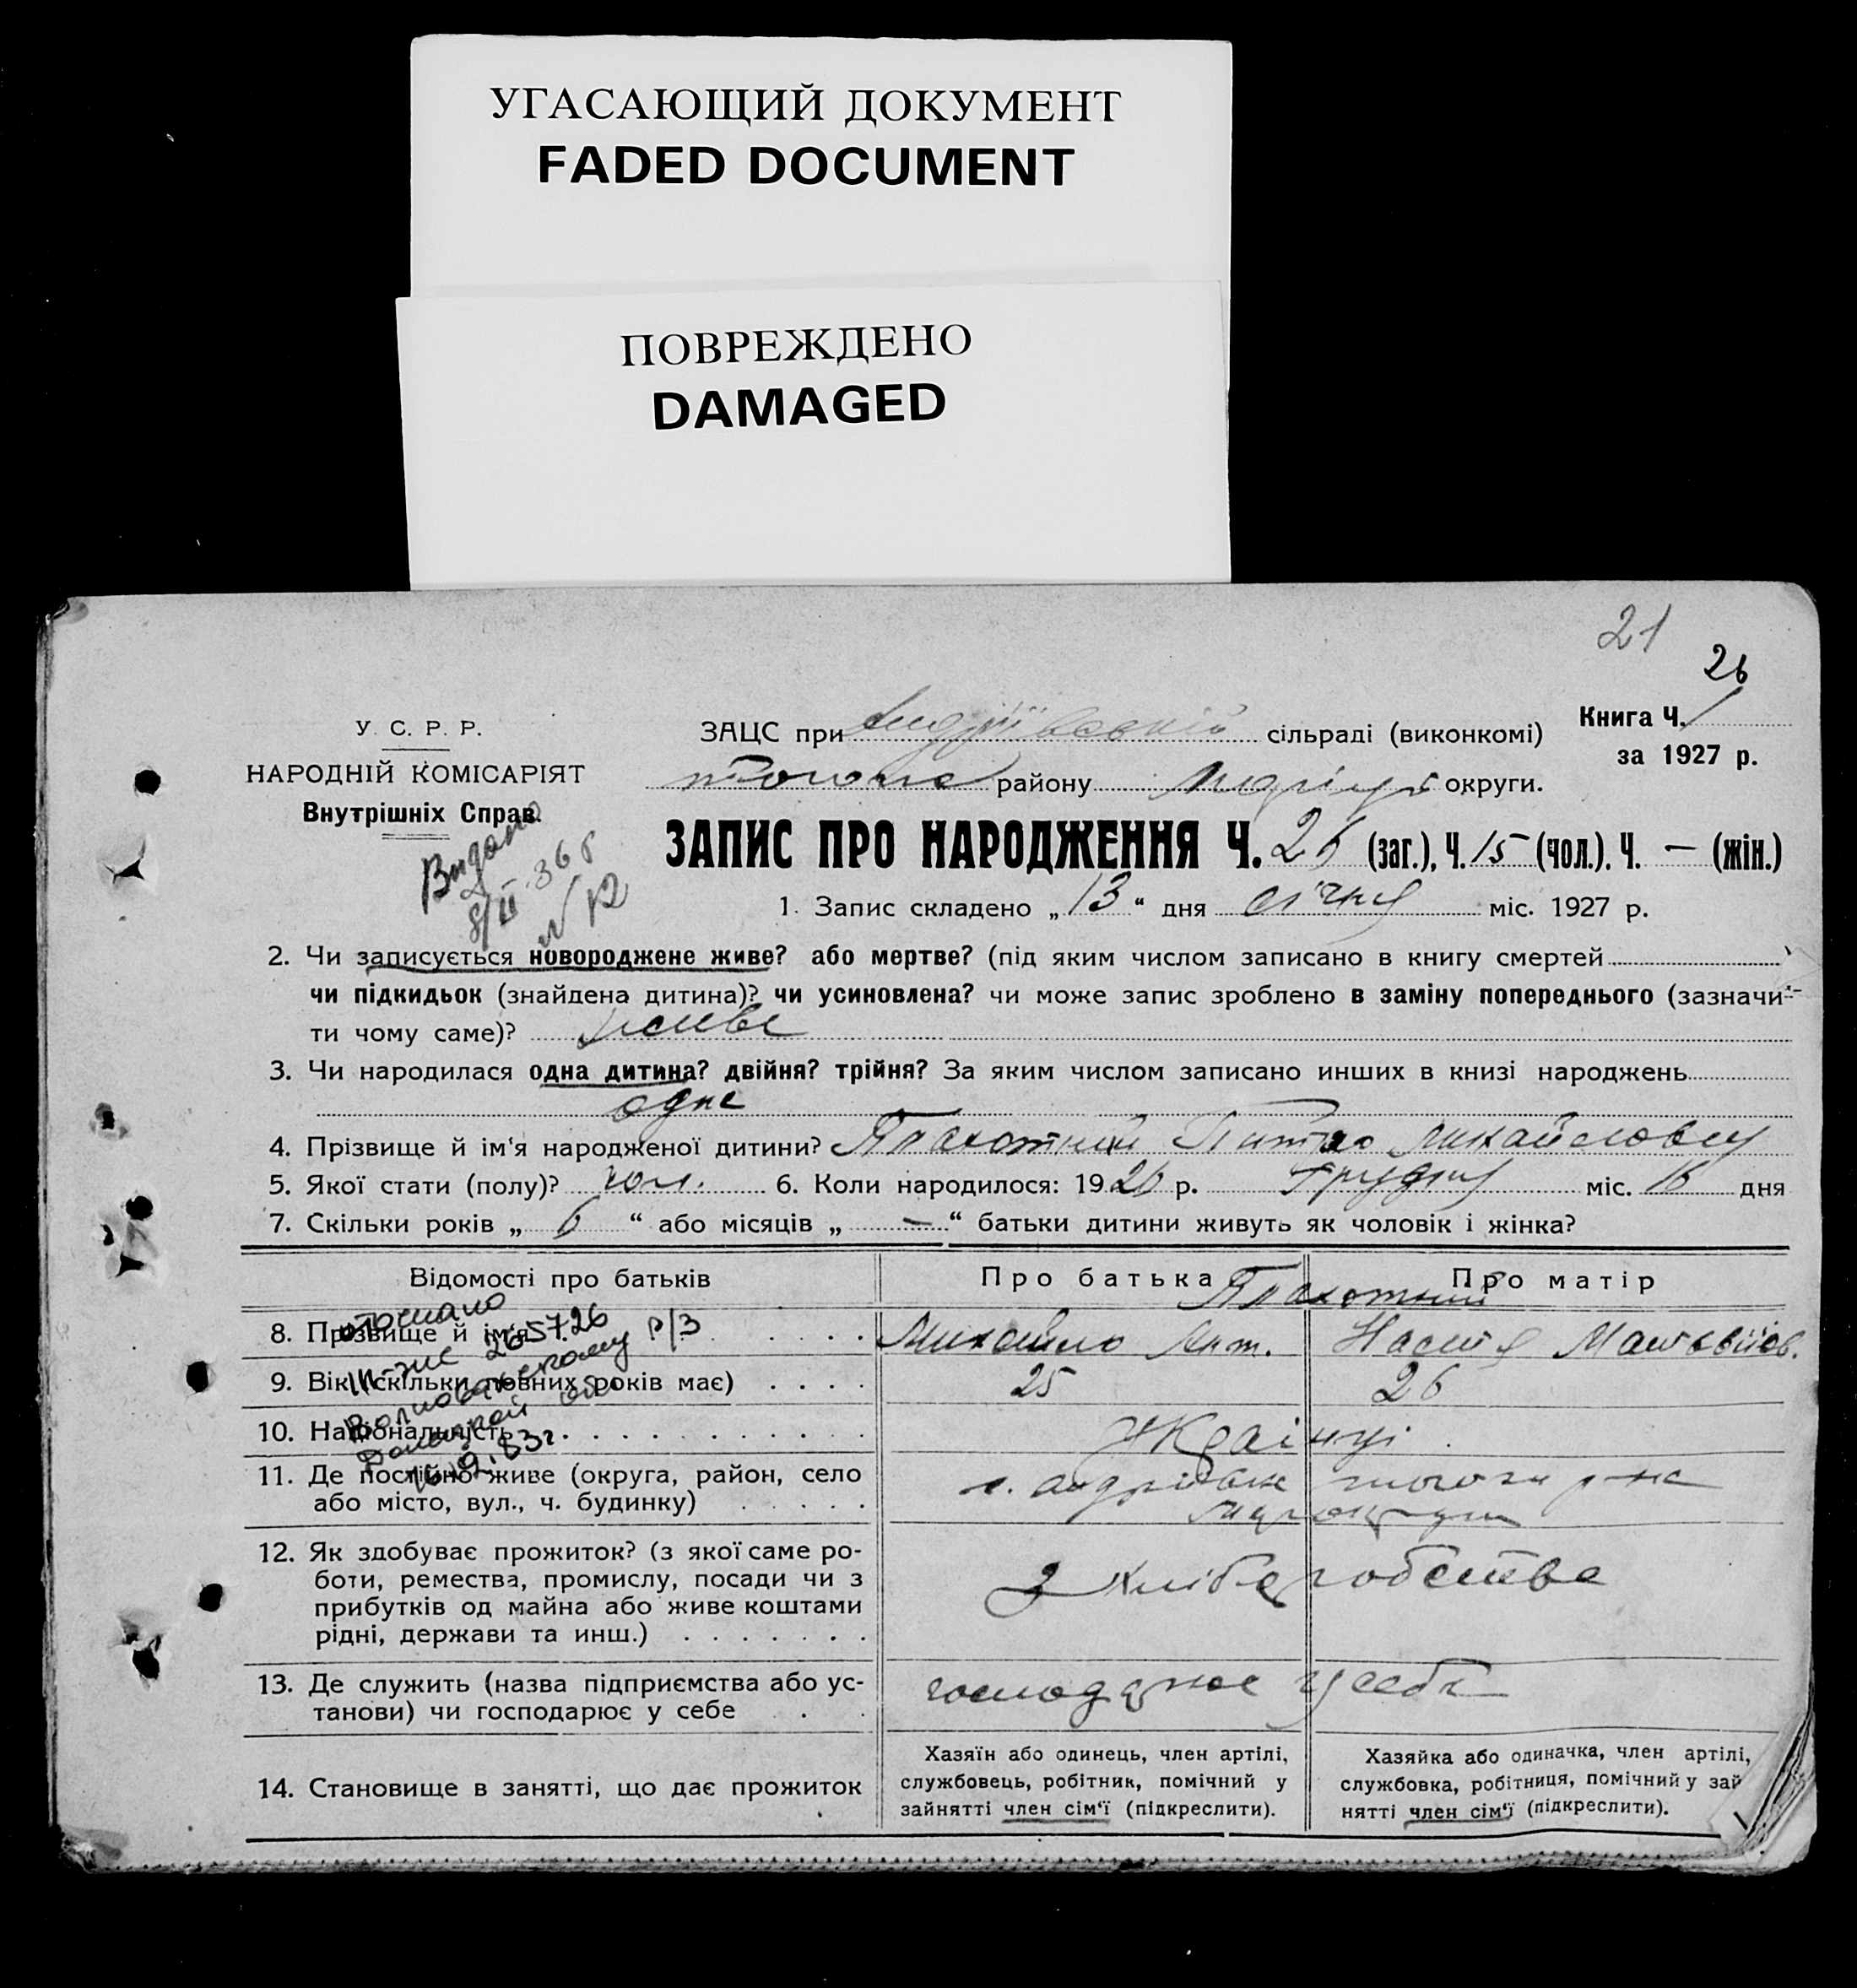 УГАСАЮЩИЙ ДОКУМЕНТ
FADED DOCUMENT
ПОВРЕЖДЕНО
DAMAGED
21
26
У. С. Р. Р.
НАРОДНІЙ КОМІСАРІЯТ
Внутрішніх Справ.
Видано
8/II-36 р
N 12
ЗАЦС при Андріївській сільраді (виконкомі)
району округи.
Книга Ч. 1
за 1927 р.
ЗАПИС ПРО НАРОДЖЕННЯ Ч. 26 (заг.), Ч. 15 (чол.). Ч. — (жін.)
1. Запис складено „13“ дня січня міс. 1927 р.
2. Чи записується новороджене живе? або мертве? (під яким числом записано в книгу смертей
чи підкидьок (знайдена дитина)? чи усиновлена? чи може запис зроблено в заміну попереднього (зазначи-
ти чому саме)? живе
3. Чи народилася одна дитина? двійня? трійня? За яким числом записано инших в книзі народжень
одне
4. Прізвище й ім'я народженої дитини? Плахотний Питро Михайлович
5. Якої стати (полу)? чол. 6. Коли народилося: 1926 р. Грудня міс. 16 дня
7. Скільки років „ 6 “ або місяців „ — “ батьки дитини живуть як чоловік і жінка?
Відомості про батьків
Про батька
Про матір
Плахотний
8. Прізвище й ім'я
Михайло Ант.
Настя Матвійов.
9. Вік (скільки повних років має)
25
26
10. Національність
Украінці
11. Де постійно живе (округа, район, село
або місто, вул., ч. будинку)
с. Андріівка
12. Як здобуває прожиток? (з якої саме ро-
боти, ремества, промислу, посади чи з
прибутків од майна або живе коштами
рідні, держави та инш.)
з хліборобства
13. Де служить (назва підприємства або ус-
танови) чи господарює у себе
господарює у себе
14. Становище в занятті, що дає прожиток
Хазяїн або одинець, член артілі,
службовець, робітник, помічний у
зайнятті член сім'ї (підкреслити).
Хазяйка або одиначка, член артілі,
службовка, робітниця, помічний у зай
нятті член сім'ї (підкреслити).
265726
Р/З
16.9.83г.